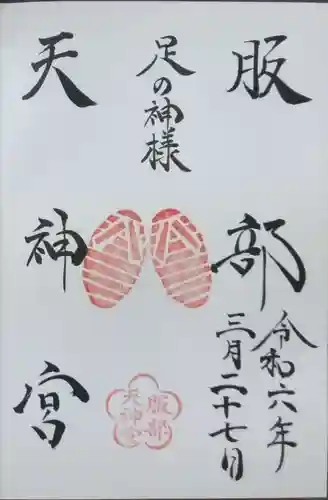 服部
足の神様
天神宮
令和六年
三月二十七日
服部
天神宮